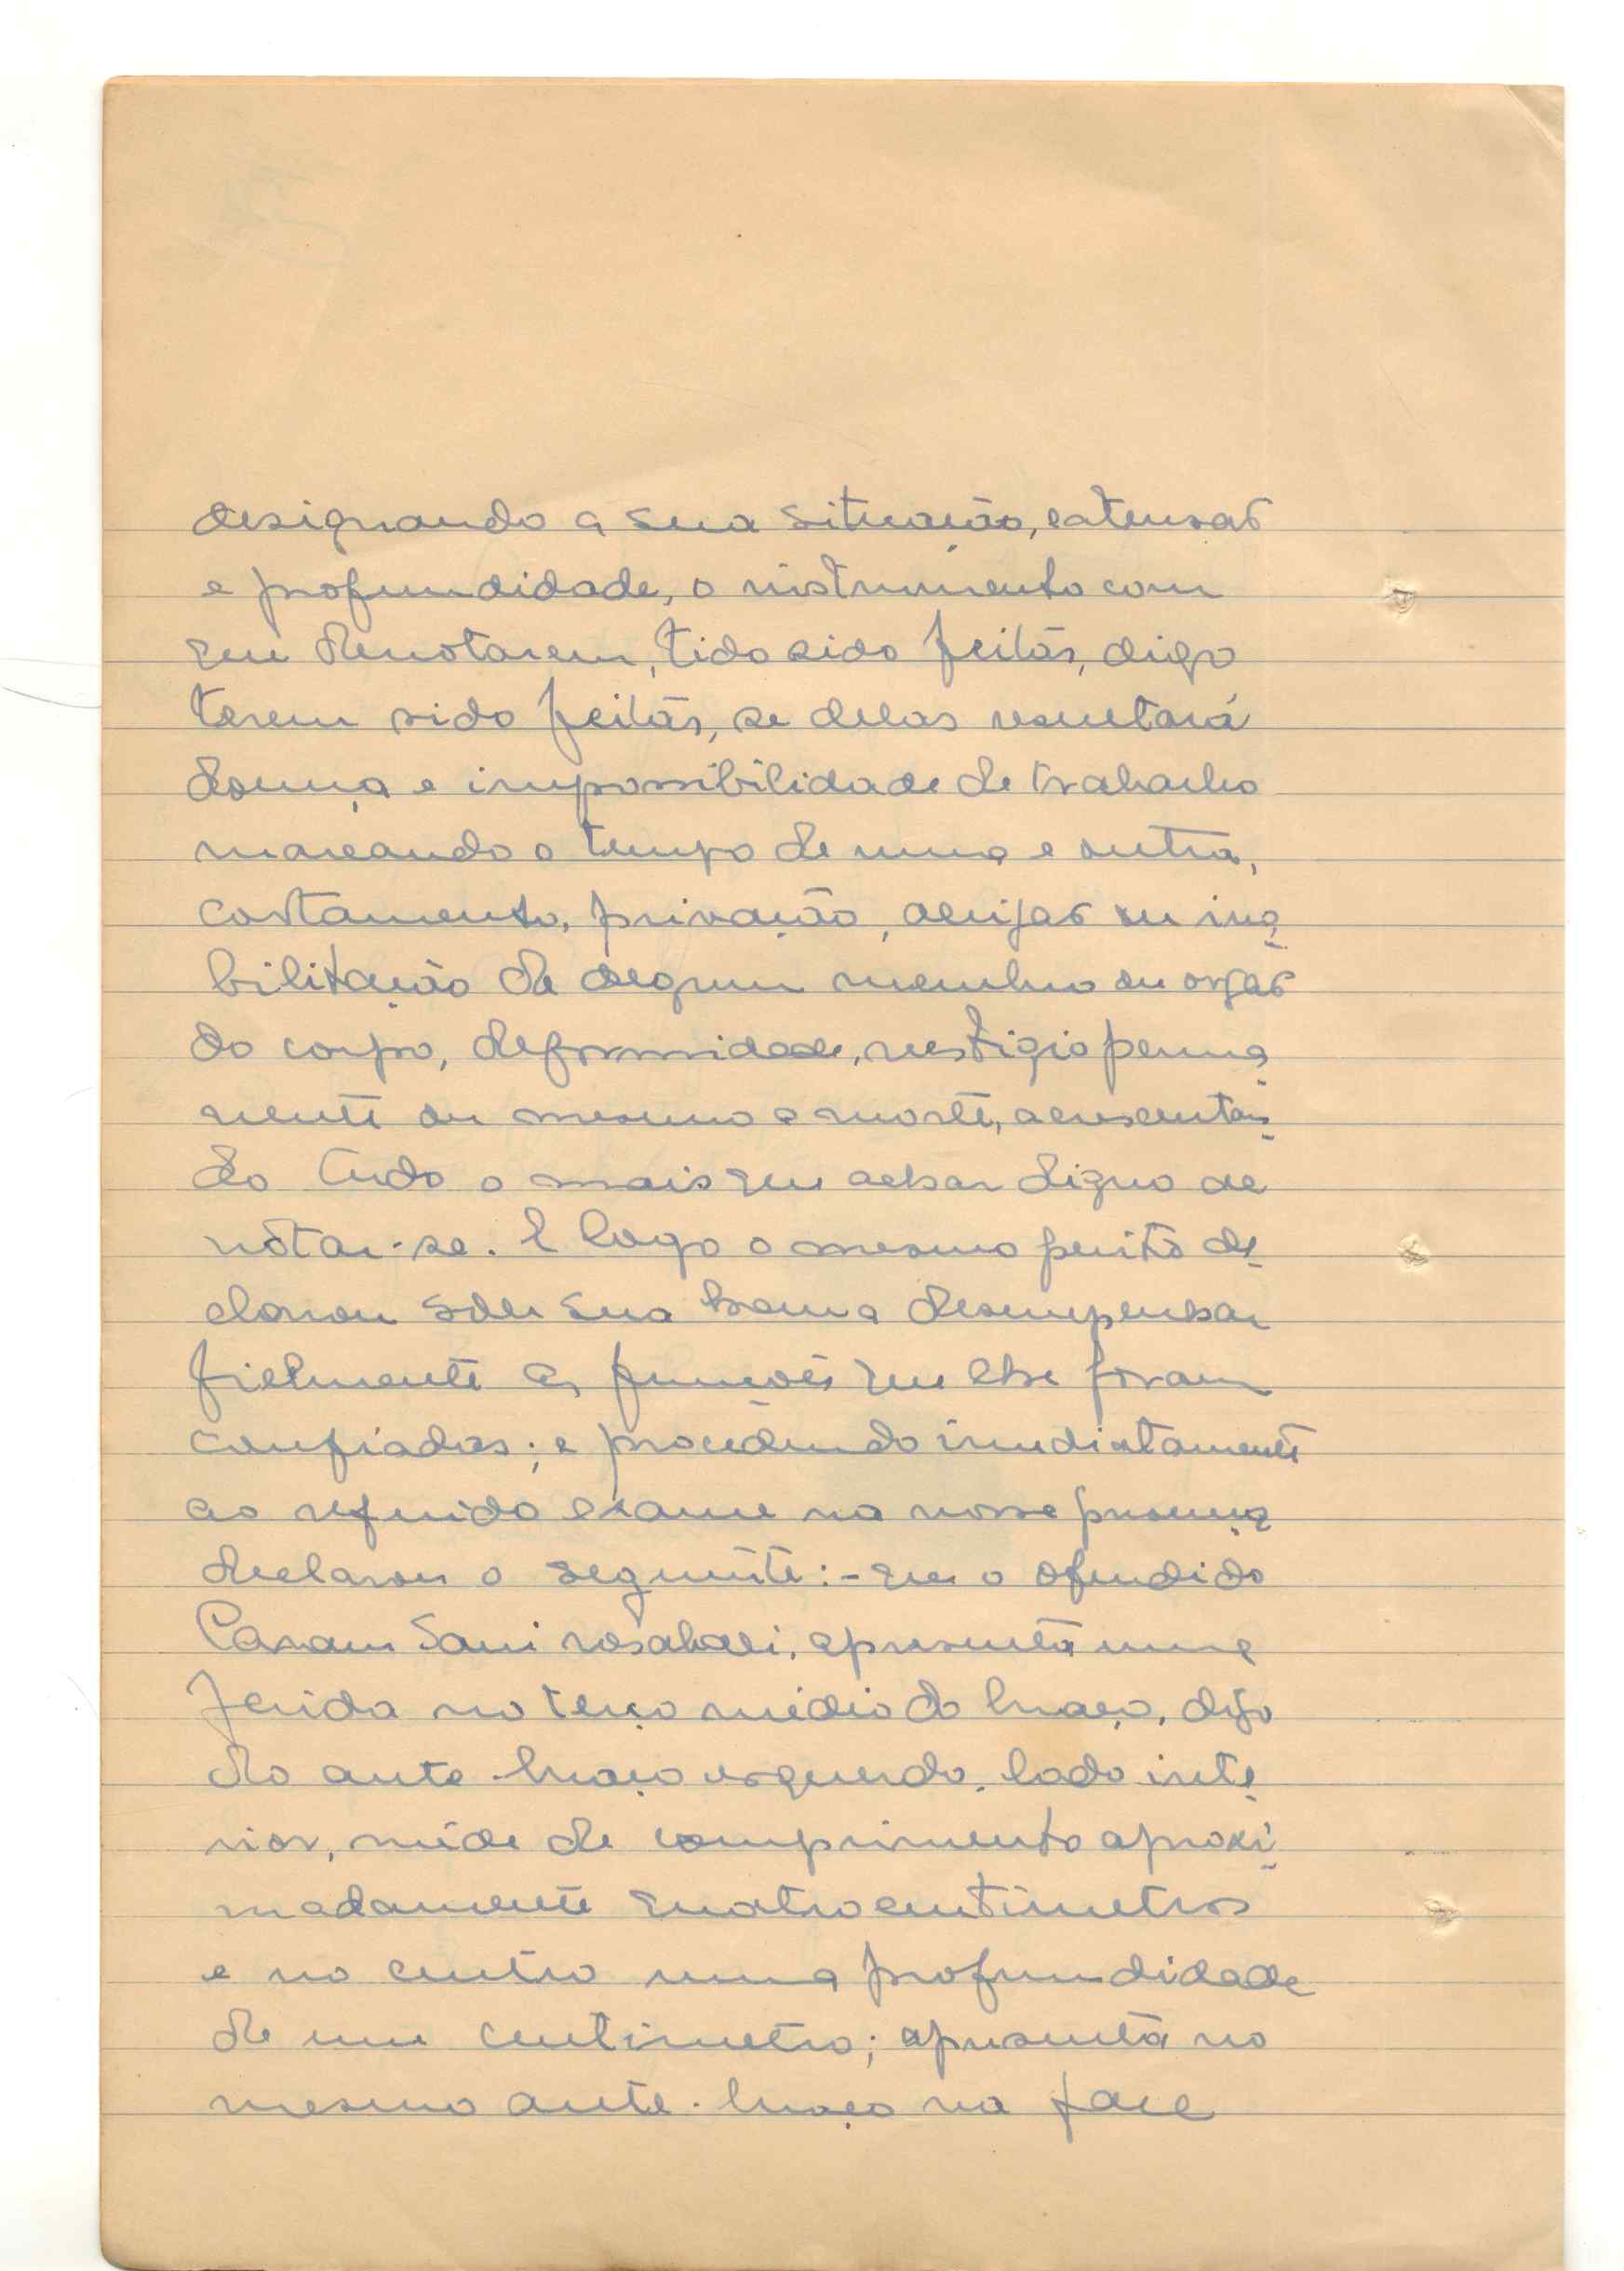 designando a sua situação, extensão
e profundidade, o instrumento com
que denotarem, tido sido feitas, digo
terem sido feitas, se delas resultará
doença e impossibilidade de trabalho
marcando o tempo de uma e outra,
cortamento, privação, aleijão ou ina
bilitação de algum membro ou orgão
do corpo, deformidade, vestigio perma
nente ou mesmo a morte, acrescentan
do tudo o mais que achar digno de
notar-se. E logo o mesmo perito de
clarou sob sua honra desempenhar
fielmente as funções que lhe foram
confiadas; e procedendo imediatamente
ao referido exame na nossa presença
declarou o seguinte:- que o ofendido
Sani apresenta uma
ferida no terço médio do braço, digo
do ante-braço esquerdo, lado inte
rior, mede de comprimento aproxi
madamente quatro centimetros
e no centro uma profundidade
de um centimetro; apresenta no
mesmo ante-braço na face